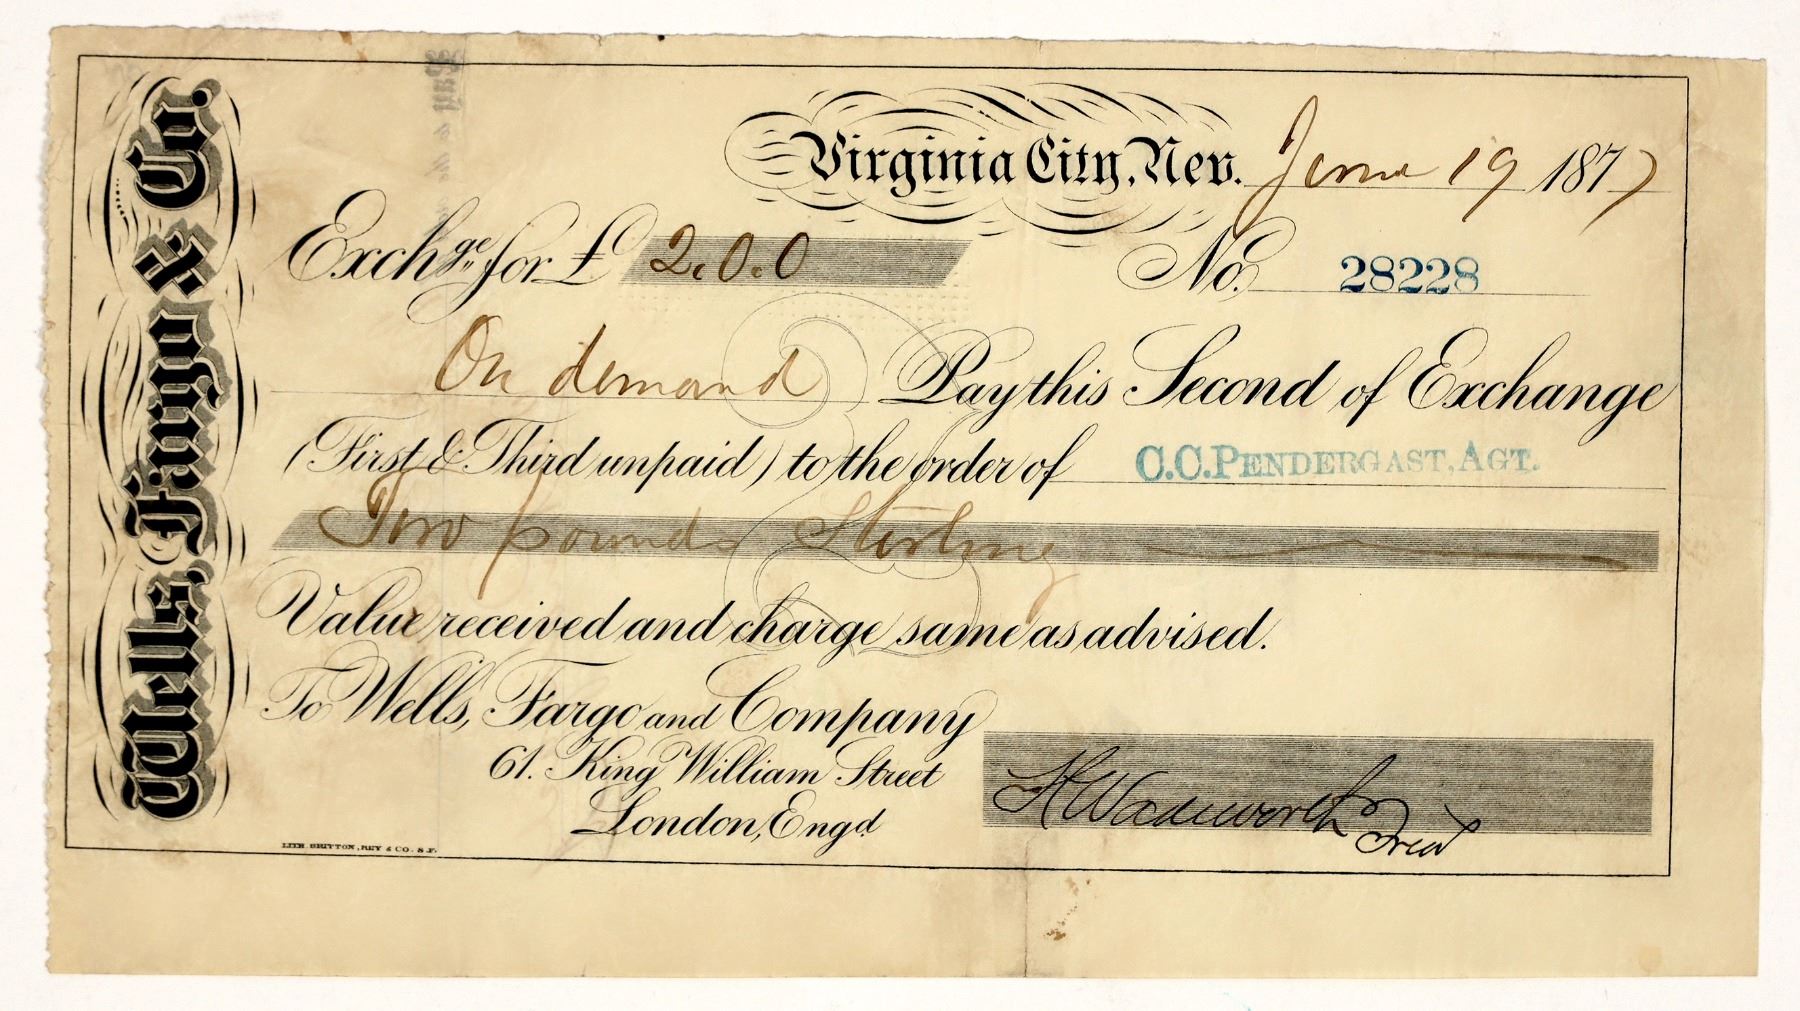 Wells, Fargo & Co.
Virginia City, Nev. June 19 1877
Exchge for £ 2.0.0 No. 28228
On demand Pay this Second of Exchange
(First & Third unpaid) to the order of C.C. PENDERGAST, AGT.
Two pounds Sterling
Value received and charge same as advised.
To Wells, Fargo and Company
61. King William Street
London, Engd
H Wadsworth
LITH. BRITTON, REY & CO. S.F.